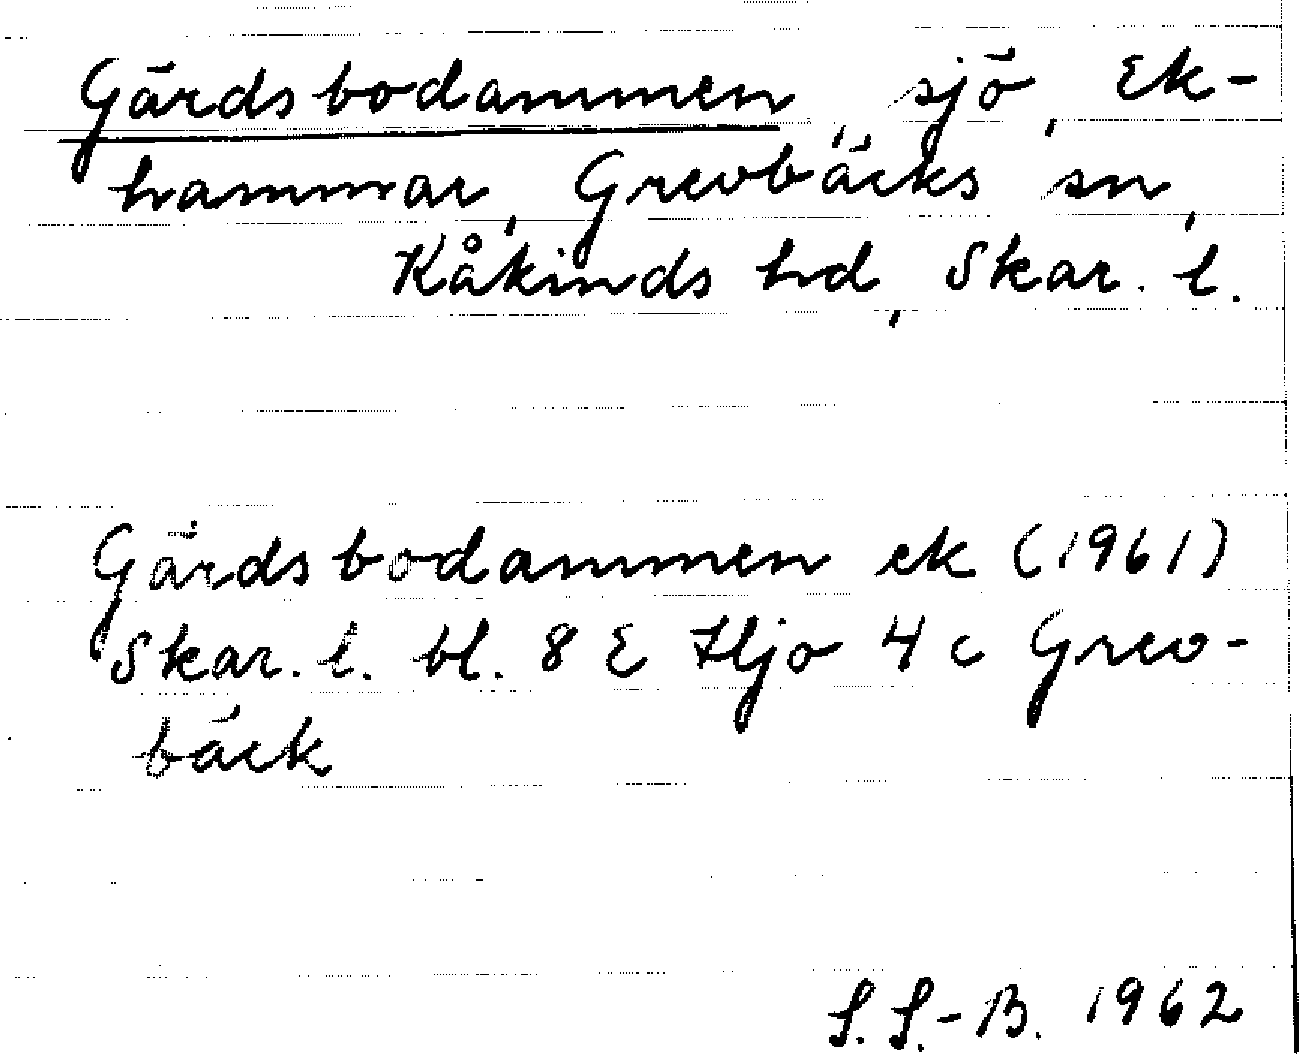 Gärdsbodammen, sjö, Ek-
hammar, Grevbäcks sn,
Kåkinds hd, Skar. l.
Gärdsbodammen ek (1961)
Skar. l. bl. 8 E Hjo 4 c Grev-
bäck
S. S.-B. 1962